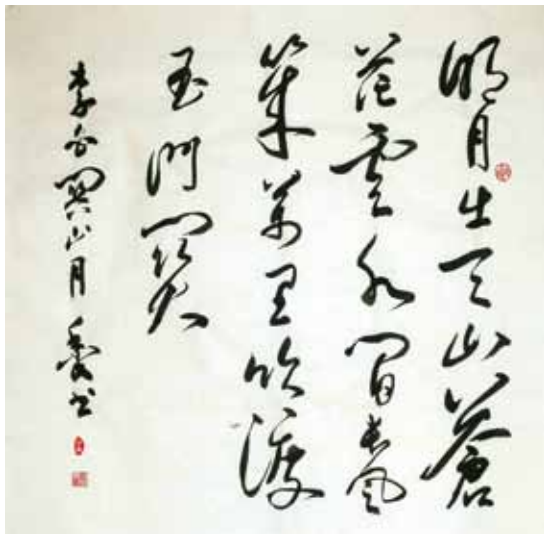 明月出天山蒼
茫雲水間長風
幾萬里吹渡
玉門關
李白關山月 書